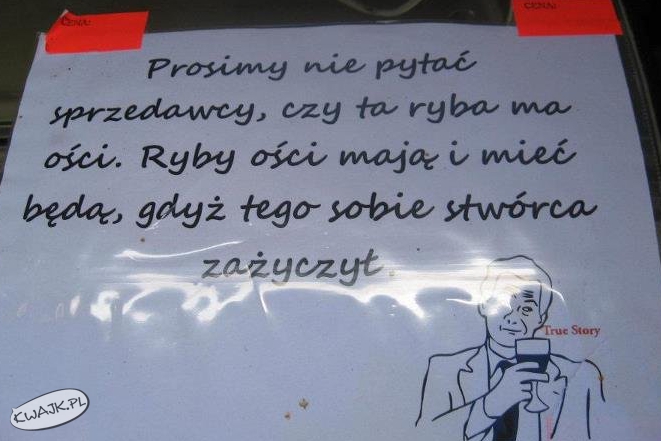 CENA:
CENA:
Prosimy nie pytać
sprzedawcy, czy ta ryba ma
ości. Ryby ości mają i mieć
będą, gdyż tego sobie stwórca
zażyczył.
True Story
KWAJK.PL